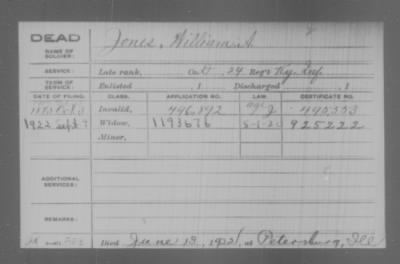 DEAD Jones, William A.
NAME OF SOLDIER:
SERVICE: Late rank, Co. 24 Reg't Ky. Inf.
TERM OF SERVICE: Enlisted 1 Discharged 1
DATE OF FILING. CLASS. APPLICATION NO. LAW. CERTIFICATE NO.
Invalid, 496,892 490,553
1922 Sept 7 Widow, 1193676 5-1-20 925222
Minor,
ADDITIONAL SERVICES:
REMARKS:
Died June 13, 1921, at Petersburg, Ill